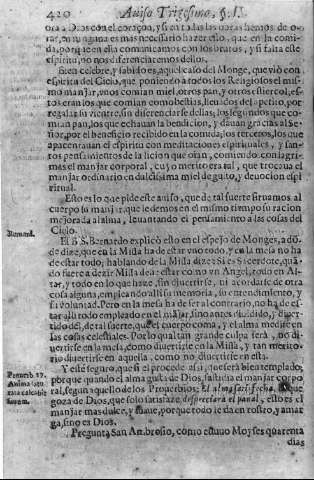 420 Auiso Trigesimo, §. I.
ora a Dios con el coraçon, y si en todas las obras hemos de o-
rar, en ninguna es mas necessario hazerlo, que en la comi-
da, porque en ella comunicamos con los brutos, y si falta este
espiritu, no nos diferenciaremos dellos.
Bien celebre, y sabido es, aquel caso del Monge, que viò con
espiritu del Cielo, que poniendo a todos los Religiosos el mismo
manjar, vnos comian miel, otros pan, y otros estiercol; es-
tos eran los que comian como bestias, lleuados del apetito, por
regalar su vientre, sin diferenciarse dellas; los segundos que co-
mian pan, los que echauan la bendicion, y dauan gracias al Se-
ñor, por el beneficio recibido en la comida; los terceros, los que
apacentauan el espiritu con meditaciones espirituales, y san-
tos pensamientos de la licion que oian, comiendo con lagrimas
el manjar corporal, cuyo merito era tal, que trocaua el
manjar ordinario en dulcissima miel de gusto, y deuocion espi-
ritual.
Esto es lo que pide este auiso, que de tal suerte siruamos al
cuerpo su manjar, que le demos en el mismo tiempo su racion
mejorada al alma, leuantando el pensamiento a las cosas del
Cielo.
Bernard.
El B. S. Bernardo explicò esto en el espejo de Monges, adò-
de dize, que en la Missa ha de estar vno todo, y en la mesa no ha
de estar todo; hablando de la Missa dize: Si es Sacerdote, quã-
do fuere a dezir Missa deue estar como vn Angel, todo en Al-
tar, y todo en lo que haze, sin diuertirse, ni acordarse de otra
cosa alguna, empleando alli su memoria, su entendimiento, y
su voluntad. Pero en la mesa ha de ser al contrario, no ha de es-
tar alli todo empleado en el mãjar, sino antes diuidido, y diuer-
tido dèl, de tal suerte, que el cuerpo coma, y el alma medite en
las cosas celestiales. Por lo qual tan grande culpa serà, no di-
uertirse en la mesa, como diuertirse en la Missa, y tan merito-
rio diuertirse en aquella, como no diuertirse en esta.
Prouerb. 27.
Anima satu
rata calcabit
fauum.
Y este seguro, que si el procede assi, que serà bien templado;
porque quando el alma gusta de Dios, fastidia el manjar corpo
ral, segun aquello de los Prouerbios: El alma satisfecha, que
goza de Dios, que solo satisfaze, despreciarà el panal, esto es el
manjar mas dulce, y suaue, porque todo le da en rostro, y amar
ga, sino es Dios.
Pregunta San Ambrosio, como estuuo Moyses quarenta
dias